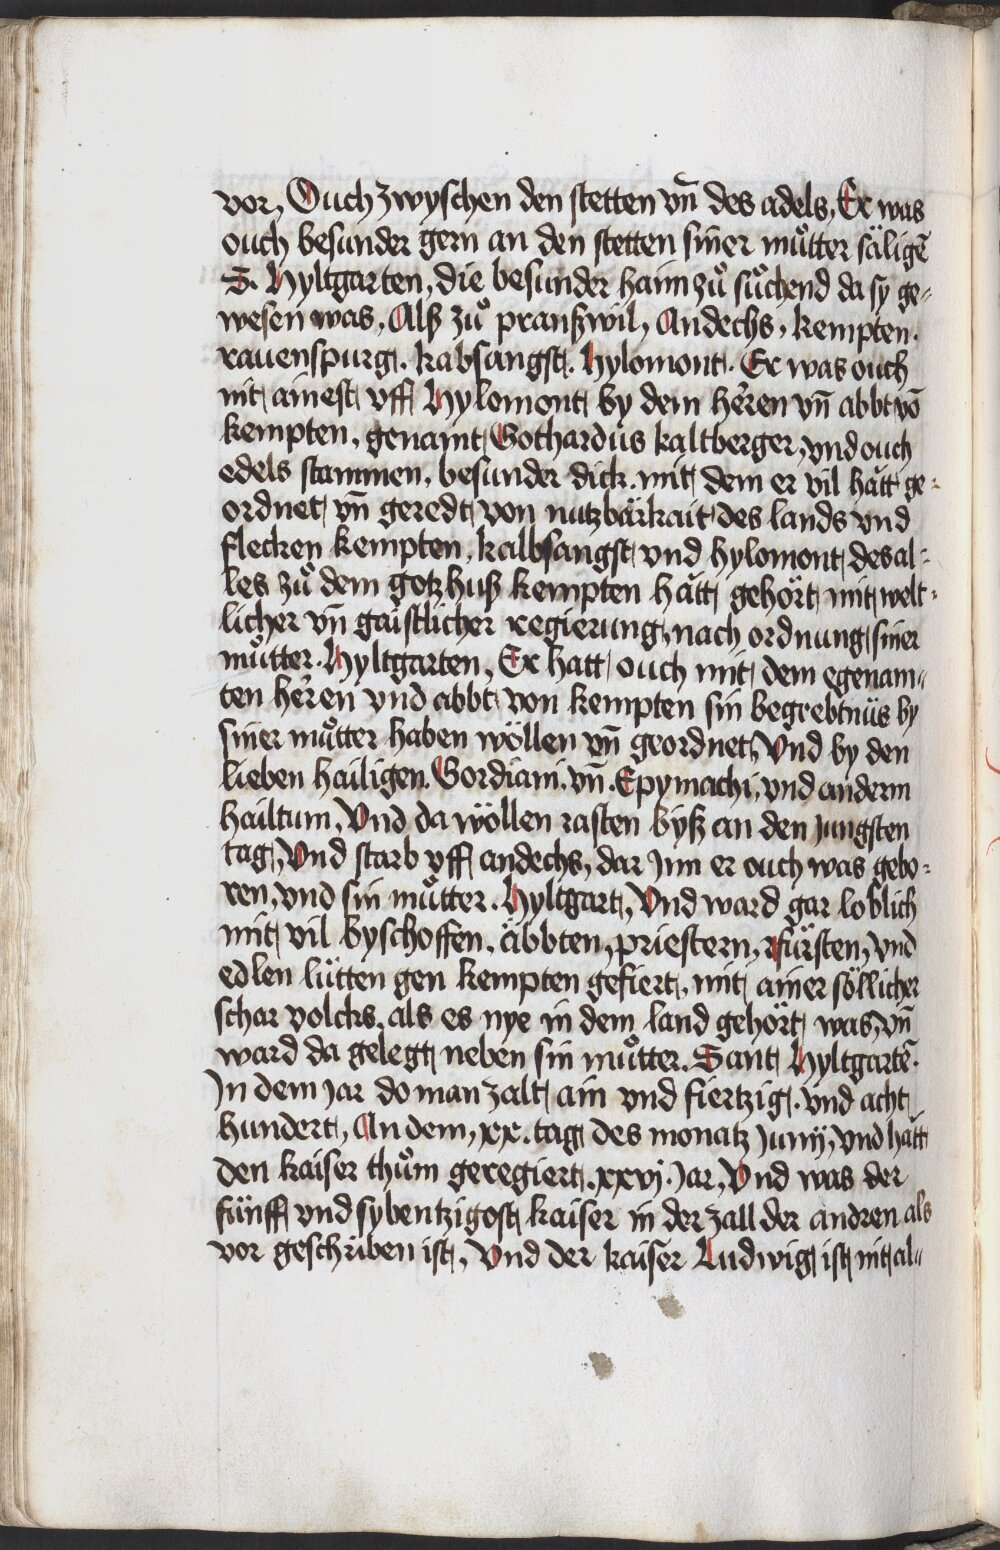 vor, Ouch zwyschen den stetten vn̄ des adels, Er was
ouch besunder gern an den stetten siner můtter säligē
S. Hyltgarten, die besunder haim zů sůchend da sy ge„
wesen was, Alß zů pranßwil, Andechs, kempten.
rauenspurg. kabsangst. hylomont. Er was ouch
nit ainest vff Hylomont by dem heren vn̄ abbt vō
kempten, genamt Gothardus kaltberger, vnd ouch
edels stammen, besunder dick. mit dem er vil hatt ge„
ordnet vn̄ geredt von nutzbärkait des lands vnd
flecken kempten, kalbsangst vnd hylomont, des al„
les zů dem gotzhuß kempten hatt gehört mit welt„
licher vn̄ gaistlicher regierung, nach ordnung siner
můtter. Hyltgarten, Er hatt ouch mit dem egenam„
ten heren vnd abbt von kempten sin begrebtnüs by
siner můtter haben wöllen vn̄ geordnet, Vnd by den
lieben hailigen. Gordiani. vn̄. Epymachi, vnd anderm
hailtum, Vnd da wöllen rasten byß an den jungsten
tag, Vnd starb vff andechs, dar jnn er ouch was gebo„
ren, vnd sin můtter. Hyltgart, Vnd ward gar loblich
mit vil byschoffen, äbbten, priestern, fürsten, vnd
edlen lütten gen kempten gefiert, mit ainer söllicher
schar volcks, als es nye in dem land gehört was, vn̄
ward da gelegt neben sin můtter. Sant Hyltgartē.
Jn dem jar do man zalt ain vnd fiertzig. vnd acht
hundert, An dem, xx. tag des monatz Junij, vnd hatt
den kaiser thům geregiert. xxvj. Jar, Vnd was der
fünff vnd sybentzigost kaiser in der zall der andren als
vor geschriben ist, Vnd der kaiser Ludwig ist nit al„